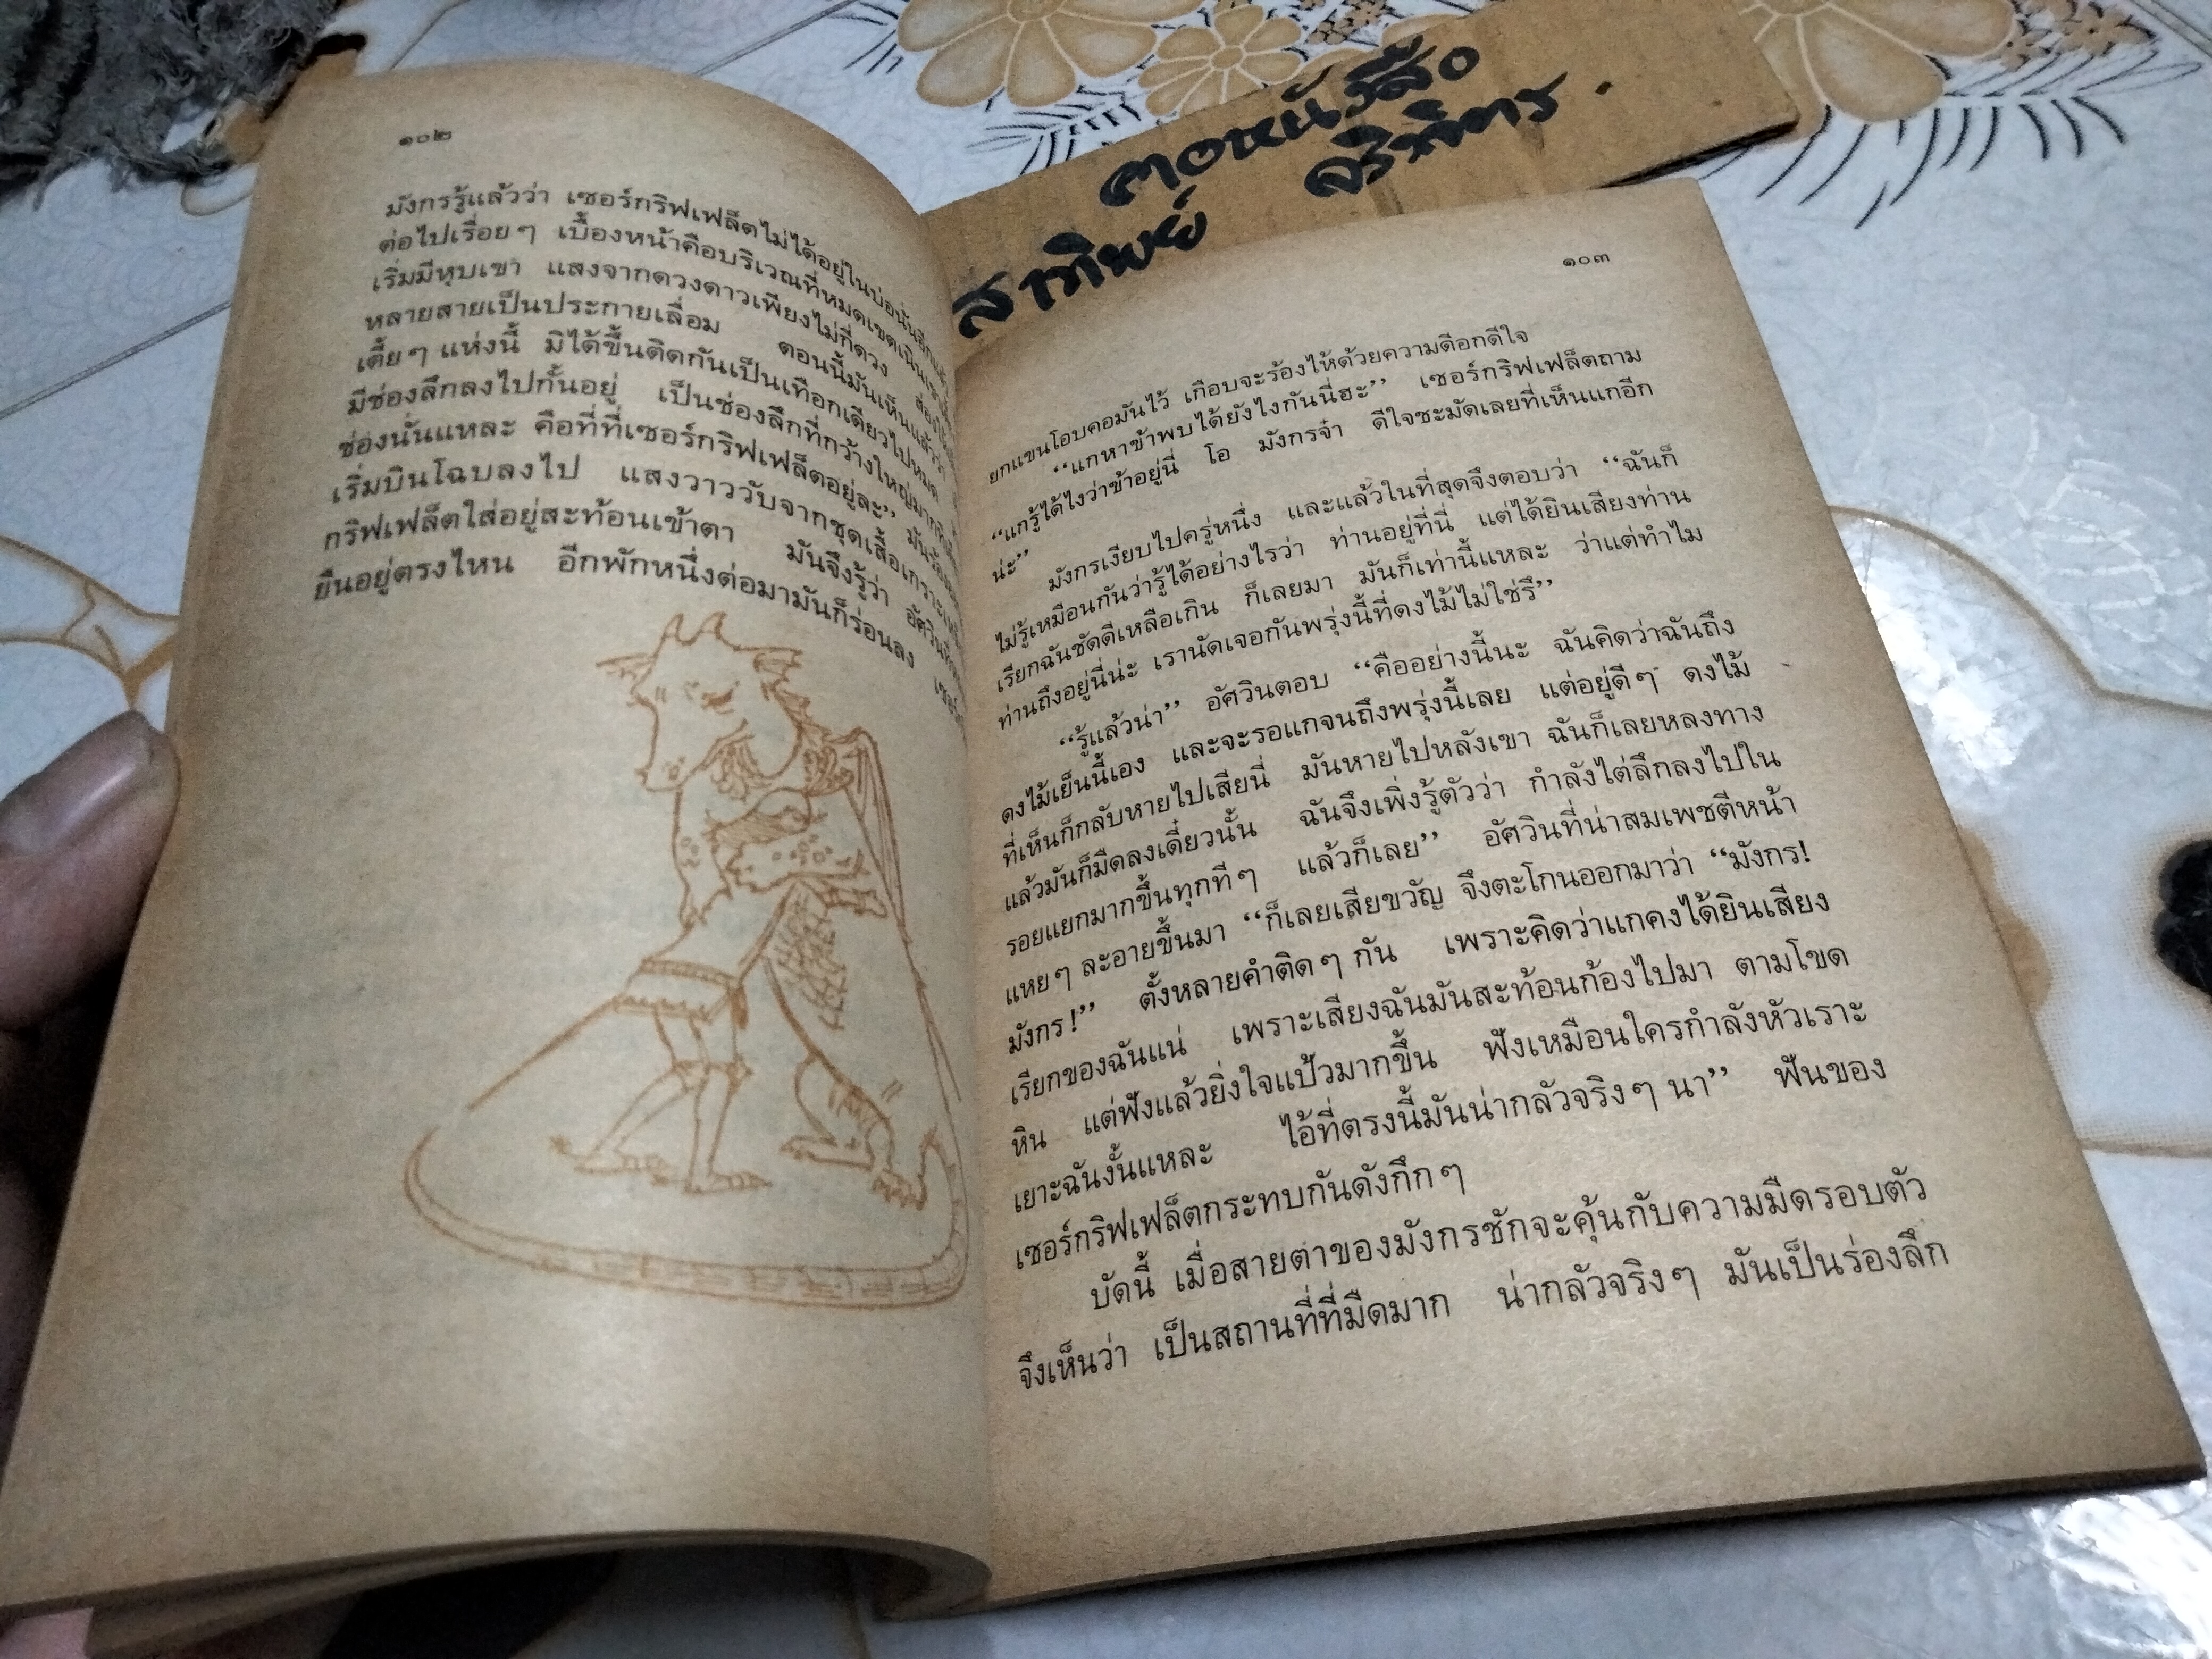 ๑๐๒
มังกรรู้แล้วว่า เซอร์กริฟเฟล็ตไม่ได้อยู่ในบ่อนั้นอีกแล้ว
ต่อไปเรื่อยๆ เบื้องหน้าคือบริเวณที่หมดเขตเนินเขา
เริ่มมีหุบเขา แสงจากดวงดาวเพียงไม่กี่ดวง
หลายสายเป็นประกายเลื่อม ตอนนี้มันเห็นแล้วว่า
เตี้ยๆ แห่งนี้ มิได้ขึ้นติดกันเป็นเทือกเดียวไปหมด
มีช่องลึกลงไปกั้นอยู่ เป็นช่องลึกที่กว้างใหญ่มาก
ช่องนั่นแหละ คือที่ที่เซอร์กริฟเฟล็ตอยู่ละ” มัน
เริ่มบินโฉบลงไป แสงวาววับจากชุดเสื้อเกราะ
กริฟเฟล็ตใส่อยู่สะท้อนเข้าตา มันจึงรู้ว่า อัศวิน
ยืนอยู่ตรงไหน อีกพักหนึ่งต่อมามันก็ร่อนลง เซอร์
คอหนังสือ
สาทิพย์
๑๐๓
ยกแขนโอบคอมันไว้ เกือบจะร้องไห้ด้วยความดีอกดีใจ
“แกหาข้าพบได้ยังไงกันนี่ฮะ” เซอร์กริฟเฟล็ตถาม
“แกรู้ได้ไงว่าข้าอยู่นี่ โอ มังกรจ๋า ดีใจชะมัดเลยที่เห็นแกอีก
น่ะ”
มังกรเงียบไปครู่หนึ่ง และแล้วในที่สุดจึงตอบว่า “ฉันก็
ไม่รู้เหมือนกันว่ารู้ได้อย่างไรว่า ท่านอยู่ที่นี่ แต่ได้ยินเสียงท่าน
เรียกฉันชัดดีเหลือเกิน ก็เลยมา มันก็เท่านี้แหละ ว่าแต่ทำไม
ท่านถึงอยู่นี่น่ะ เรานัดเจอกันพรุ่งนี้ที่ดงไม้ไม่ใช่รึ”
“รู้แล้วน่า” อัศวินตอบ “คืออย่างนี้นะ ฉันคิดว่าฉันถึง
ดงไม้เย็นนี้เอง และจะรอแกจนถึงพรุ่งนี้เลย แต่อยู่ดีๆ ดงไม้
ที่เห็นก็กลับหายไปเสียนี่ มันหายไปหลังเขา ฉันก็เลยหลงทาง
แล้วมันก็มืดลงเดี๋ยวนั้น ฉันจึงเพิ่งรู้ตัวว่า กำลังไต่ลึกลงไปใน
รอยแยกมากขึ้นทุกทีๆ แล้วก็เลย” อัศวินที่น่าสมเพชตีหน้า
แหยๆ ละอายขึ้นมา “ก็เลยเสียขวัญ จึงตะโกนออกมาว่า “มังกร!
มังกร!” ตั้งหลายคำติดๆ กัน เพราะคิดว่าแกคงได้ยินเสียง
เรียกของฉันแน่ เพราะเสียงฉันมันสะท้อนก้องไปมา ตามโขด
หิน แต่ฟังแล้วยิ่งใจแป้วมากขึ้น ฟังเหมือนใครกำลังหัวเราะ
เยาะฉันงั้นแหละ ไอ้ที่ตรงนี้มันน่ากลัวจริงๆ นา” ฟันของ
เซอร์กริฟเฟล็ตกระทบกันดังกึกๆ
บัดนี้ เมื่อสายตาของมังกรชักจะคุ้นกับความมืดรอบตัว
จึงเห็นว่า เป็นสถานที่ที่มืดมาก น่ากลัวจริงๆ มันเป็นร่องลึก